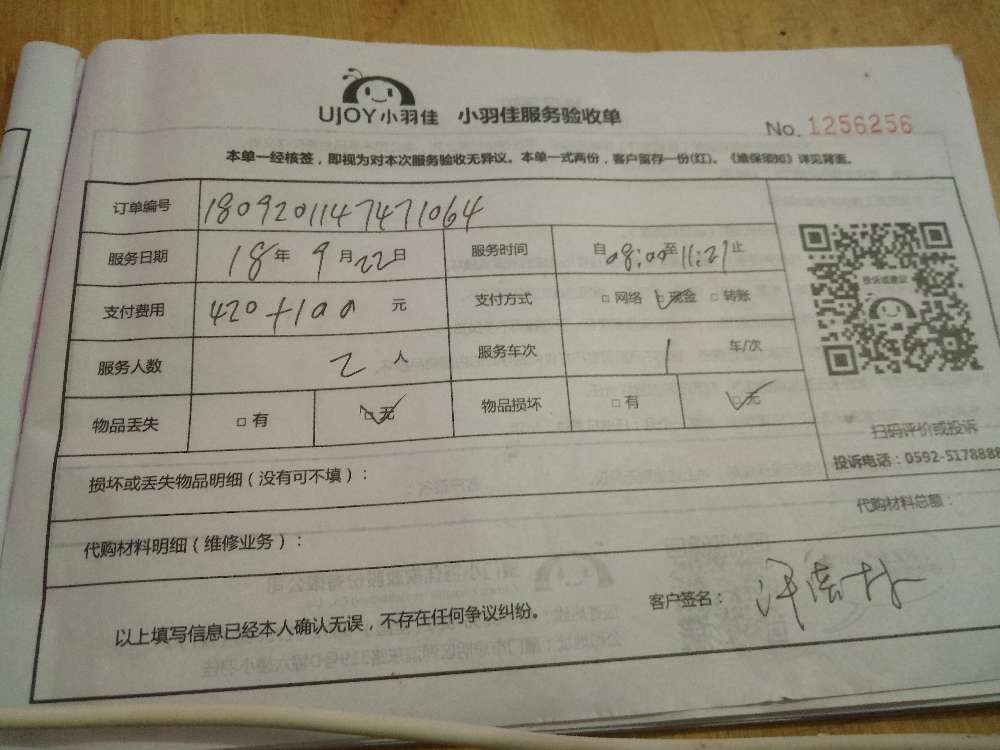 UJOY小羽佳 小羽佳服务验收单
No. 1256256
本单一经核签，即视为对本次服务验收无异议。本单一式两份，客户留存一份(红)。《维保须知》详见背面。
订单编号 1809201147471064
服务日期 18年9月22日 服务时间 自08:00至11:21止
支付费用 420+100 元 支付方式 □网络 ☑现金 □转账
服务人数 2人 服务车次 1 车/次
物品丢失 □有 ☑无 物品损坏 □有 ☑无
投诉或建议
扫码评价或投诉
投诉电话：0592-5178888
损坏或丢失物品明细（没有可不填）：
代购材料明细（维修业务）： 代购材料总额：
以上填写信息已经本人确认无误，不存在任何争议纠纷。 客户签名：